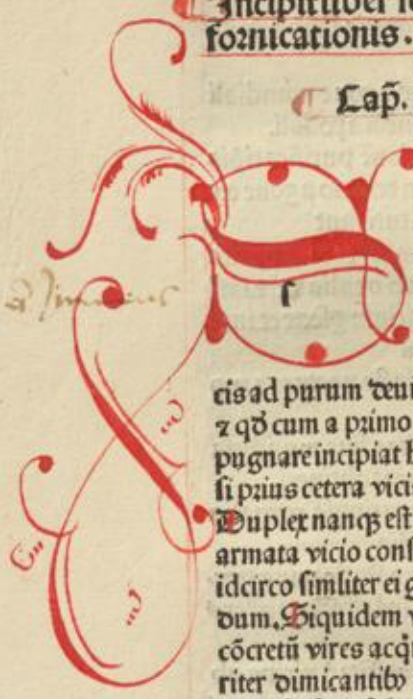 Incipit liber
fornicationis.
Cap̄.
ſ
cis ad purum deui
⁊ qđ cum a primo
pugnare incipiat
ſi prius cetera vici
Duplex nanqꝫ eſt
armata vicio conſ
idcirco ſimliter ei g
dum. Siquidem v
cōcretū vires acqͥ
riter dimicantibꝰ